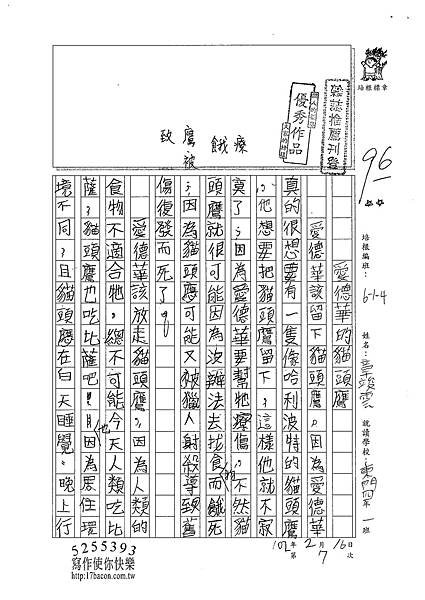 培根標章
雜誌推薦刊登
優秀作品
96
培根編班：
6-1-4
姓名：
就讀學校：
第一班
102年2月16日
第7次
愛德華的貓頭鷹
愛德華該留下貓頭鷹，因為愛德華
真的很想要有一隻像哈利波特的貓頭鷹
，他想要把貓頭鷹留下，這樣他就不寂
寞了，因為愛德華要幫牠療傷，不然貓
頭鷹就很可能因為沒辦法去找食物而餓死
，因為貓頭鷹可能又被獵人射殺導致舊
傷復發而死了。
愛德華該放走貓頭鷹，因為人類的
食物不適合牠，總不可能今天人類吃比
薩，貓頭鷹也吃比薩吧！也因為居住環
境不同，且貓頭鷹在白天睡覺，晚上行
療
餓
鷹
被
致
5255393
寫作使你快樂
http://17bacon.com.tw